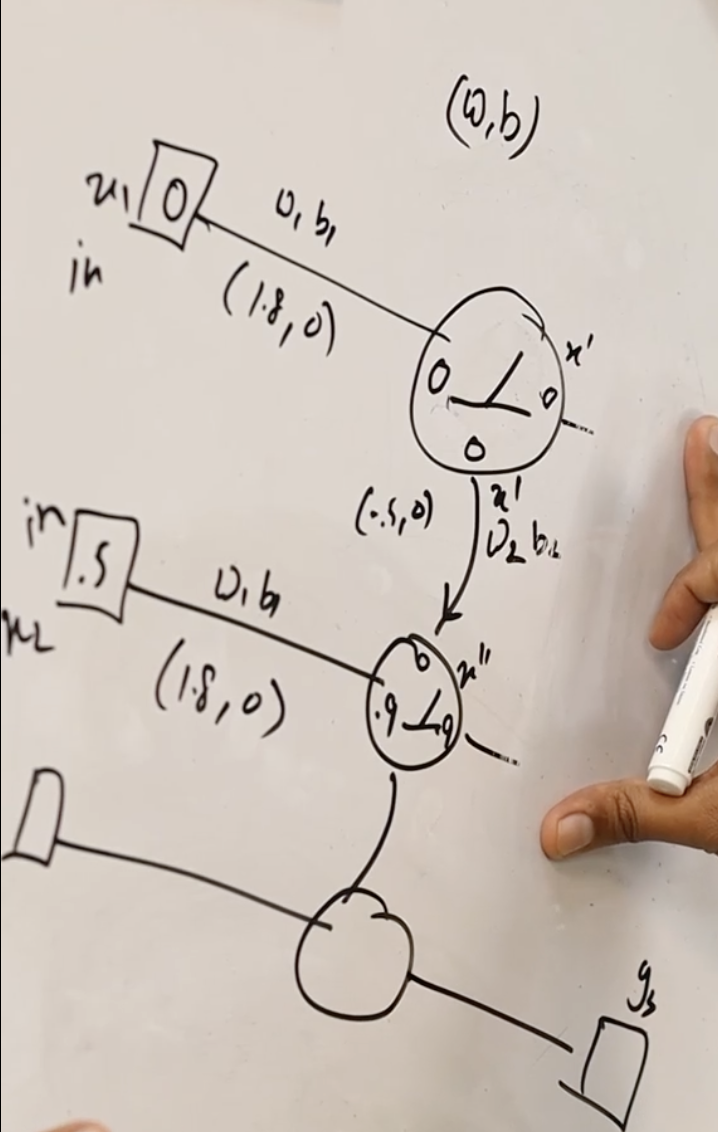 (W,b)
x₁ 0
in
W₁ b₁
(1.8, 0)
0 0
0
x'
(-.5, 0)
x'
W₂ b₂
in .5
x₂
W₁ b₁
(1.8, 0)
0
x''
.9 .9
y₃
CE